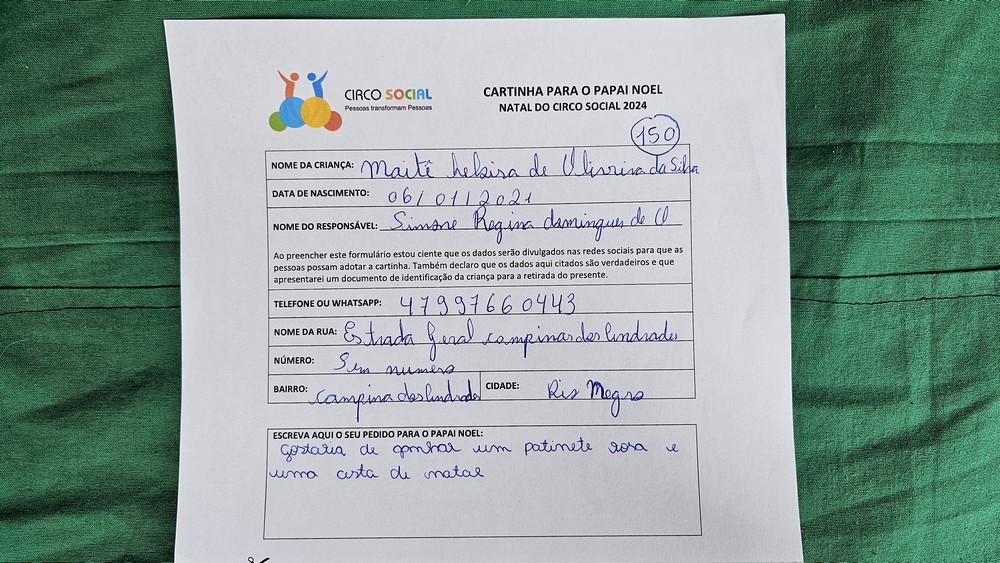 CIRCO SOCIAL
Pessoas transformam Pessoas
CARTINHA PARA O PAPAI NOEL
NATAL DO CIRCO SOCIAL 2024
150
NOME DA CRIANÇA: Maitê heloisa de Oliveira da Silva
DATA DE NASCIMENTO: 06/01/2021
NOME DO RESPONSÁVEL: Simone Regina domingues de O
Ao preencher este formulário estou ciente que os dados serão divulgados nas redes sociais para que as
pessoas possam adotar a cartinha. Também declaro que os dados aqui citados são verdadeiros e que
apresentarei um documento de identificação da criança para a retirada do presente.
TELEFONE OU WHATSAPP: 47997660443
NOME DA RUA: Estrada Geral campinas dos Andrades
NÚMERO: Sem numero
BAIRRO: campina dos Andrades CIDADE: Rio Negro
ESCREVA AQUI O SEU PEDIDO PARA O PAPAI NOEL:
gostaria de ganhar um patinete rosa e
uma cesta de natal